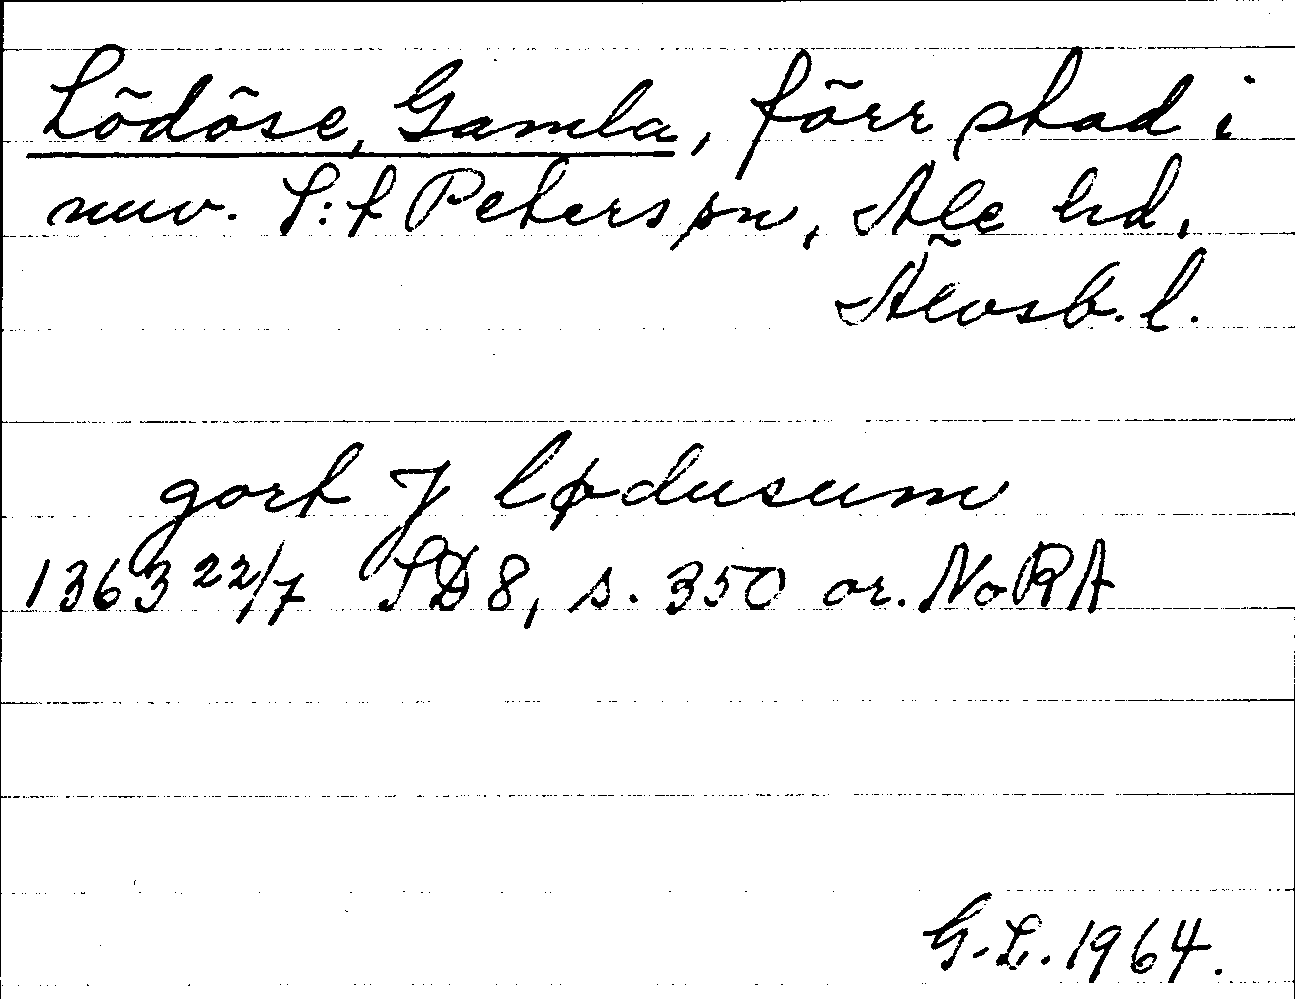 Lödöse, Gamla, förr stad i
nuv. S:t Peters sn, Ale hd,
Älvsb. l.
gort J lødusum
1363 22/7 SD 8, s. 350 or. NoRA
G. L. 1964.